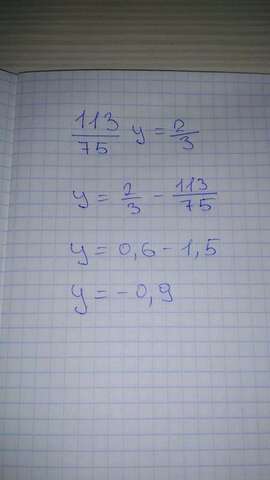 113/75 y = 2/3
y = 2/3 - 113/75
y = 0,6 - 1,5
y = -0,9